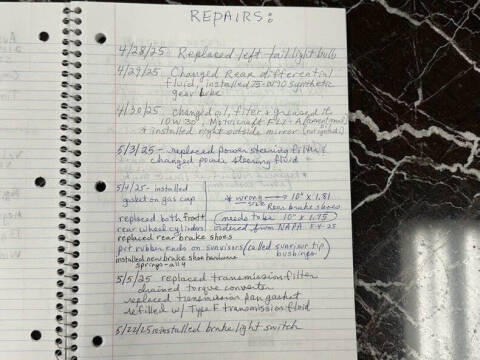 REPAIRS:
4/28/25 Replaced left tail light bulb
4/29/25 Changed Rear differential
fluid, installed 75-W90 synthetic
gear lube
4/30/25 changed oil, filter & greased it
10W30, Motorcraft FL1-A
& installed right outside mirror
5/3/25 - replaced power steering filter &
changed power steering fluid
5/4/25 - installed
gasket on gas cap
* wrong size → 10" x 1.81
Rear brake shoes
replaced both front
(needs to be 10" x 1.75)
rear wheel cylinders
ordered from NAPA 5-4-25
replaced rear brake shoes
put rubber ends on sunvisors (called sunvisor tip
bushings)
installed new brake shoe hardware
springs - all 4
5/5/25 replaced transmission filter
drained torque converter
replaced transmission pan gasket
refilled w/ Type F transmission fluid
5/22/25 installed brake light switch